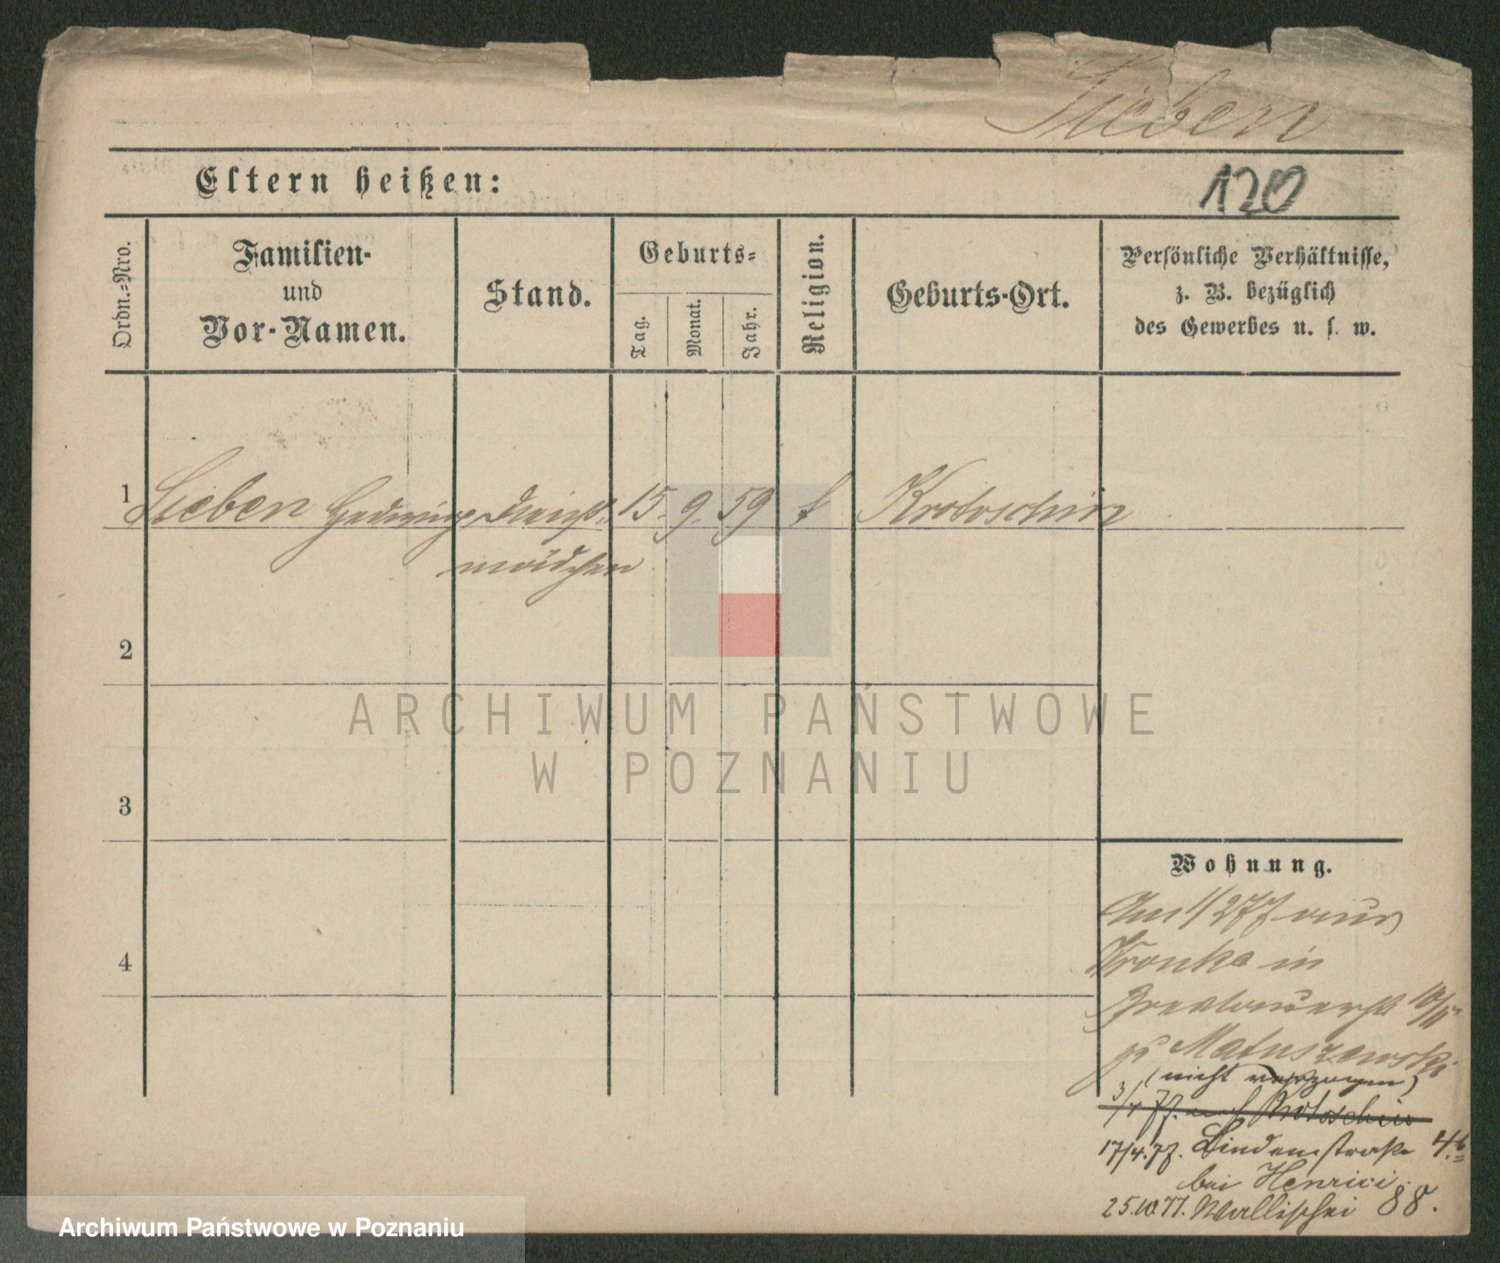 Sieben
Eltern heißen:
120
Ordn.-Nro.
Familien-
und
Vor-Namen.
Stand.
Geburts-
Tag.
Monat.
Jahr.
Religion.
Geburts-Ort.
Persönliche Verhältnisse,
z. B. bezüglich
des Gewerbes u. s. w.
1 Sieben Hedwig Dienst- 15. 9. 59 k Krotoschin
mädchen
2
3
4
Wohnung.
Am 1/2 77 aus
Wronke in
10/11
zu Matuszewski
(nicht verzogen)
3/4 77. nach Krotoschin
17/4. 77. Lindenstraße 4b
bei Henrici
25.10.77. Wallischei 88.
ARCHIWUM PAŃSTWOWE
W POZNANIU
Archiwum Państwowe w Poznaniu